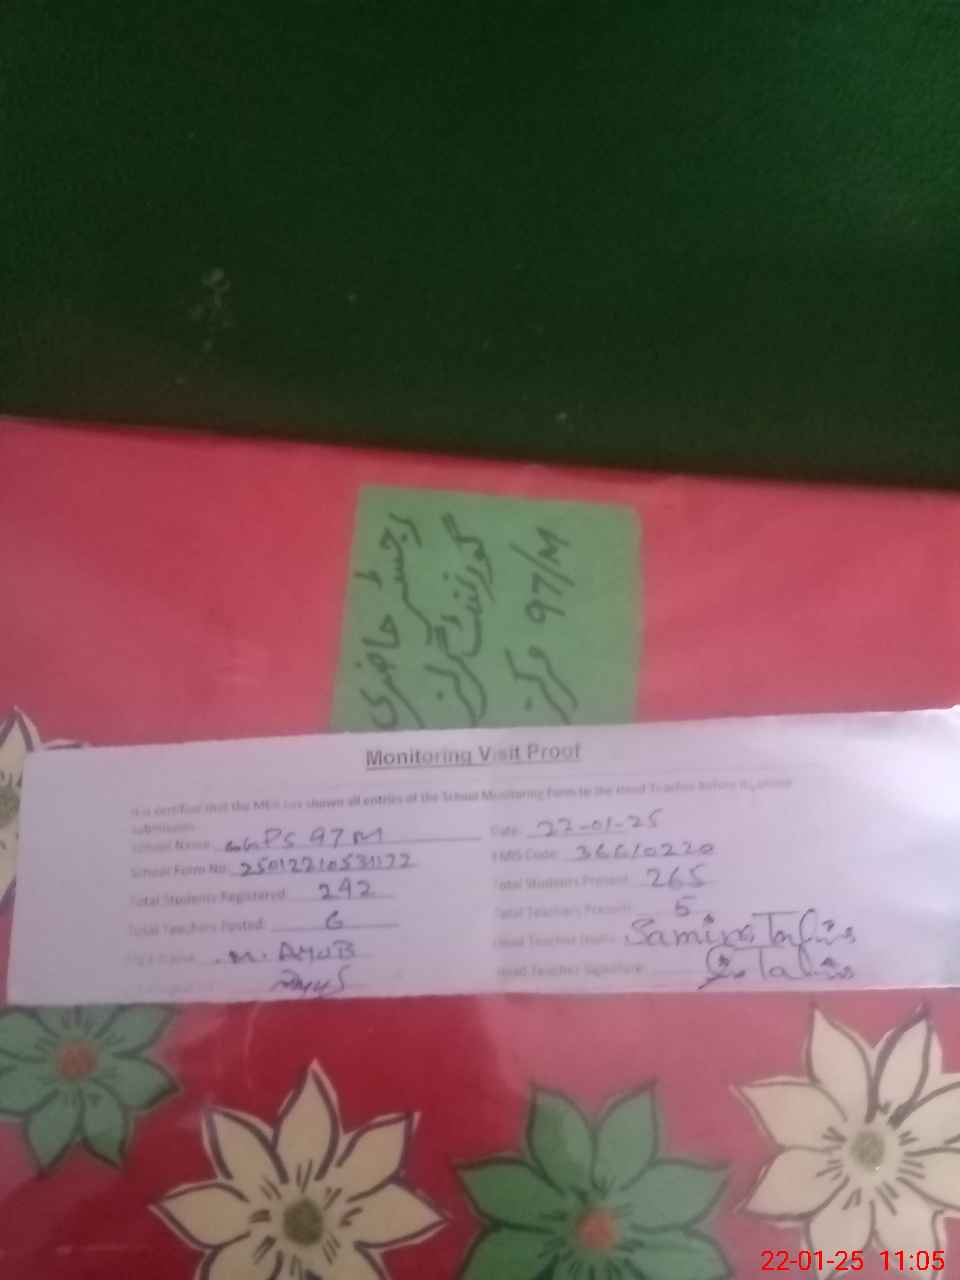 رجسٹر حاضری
گورنمنٹ گرلز
مرکز 97/M
Monitoring Visit Proof
It is certified that the MEA has shown all entries of the School Monitoring Form to the Head Teacher before its online
submission.
School Name: GGPS 97M Date: 22-01-25
School Form No: 25012210531172 EMIS Code: 36610220
Total Students Registered: 292 Total Students Present: 265
Total Teachers Posted: 6 Total Teachers Present: 5
MEA Name: M. AYUB Head Teacher Name: Samina
Head Teacher Signature:
22-01-25 11:05